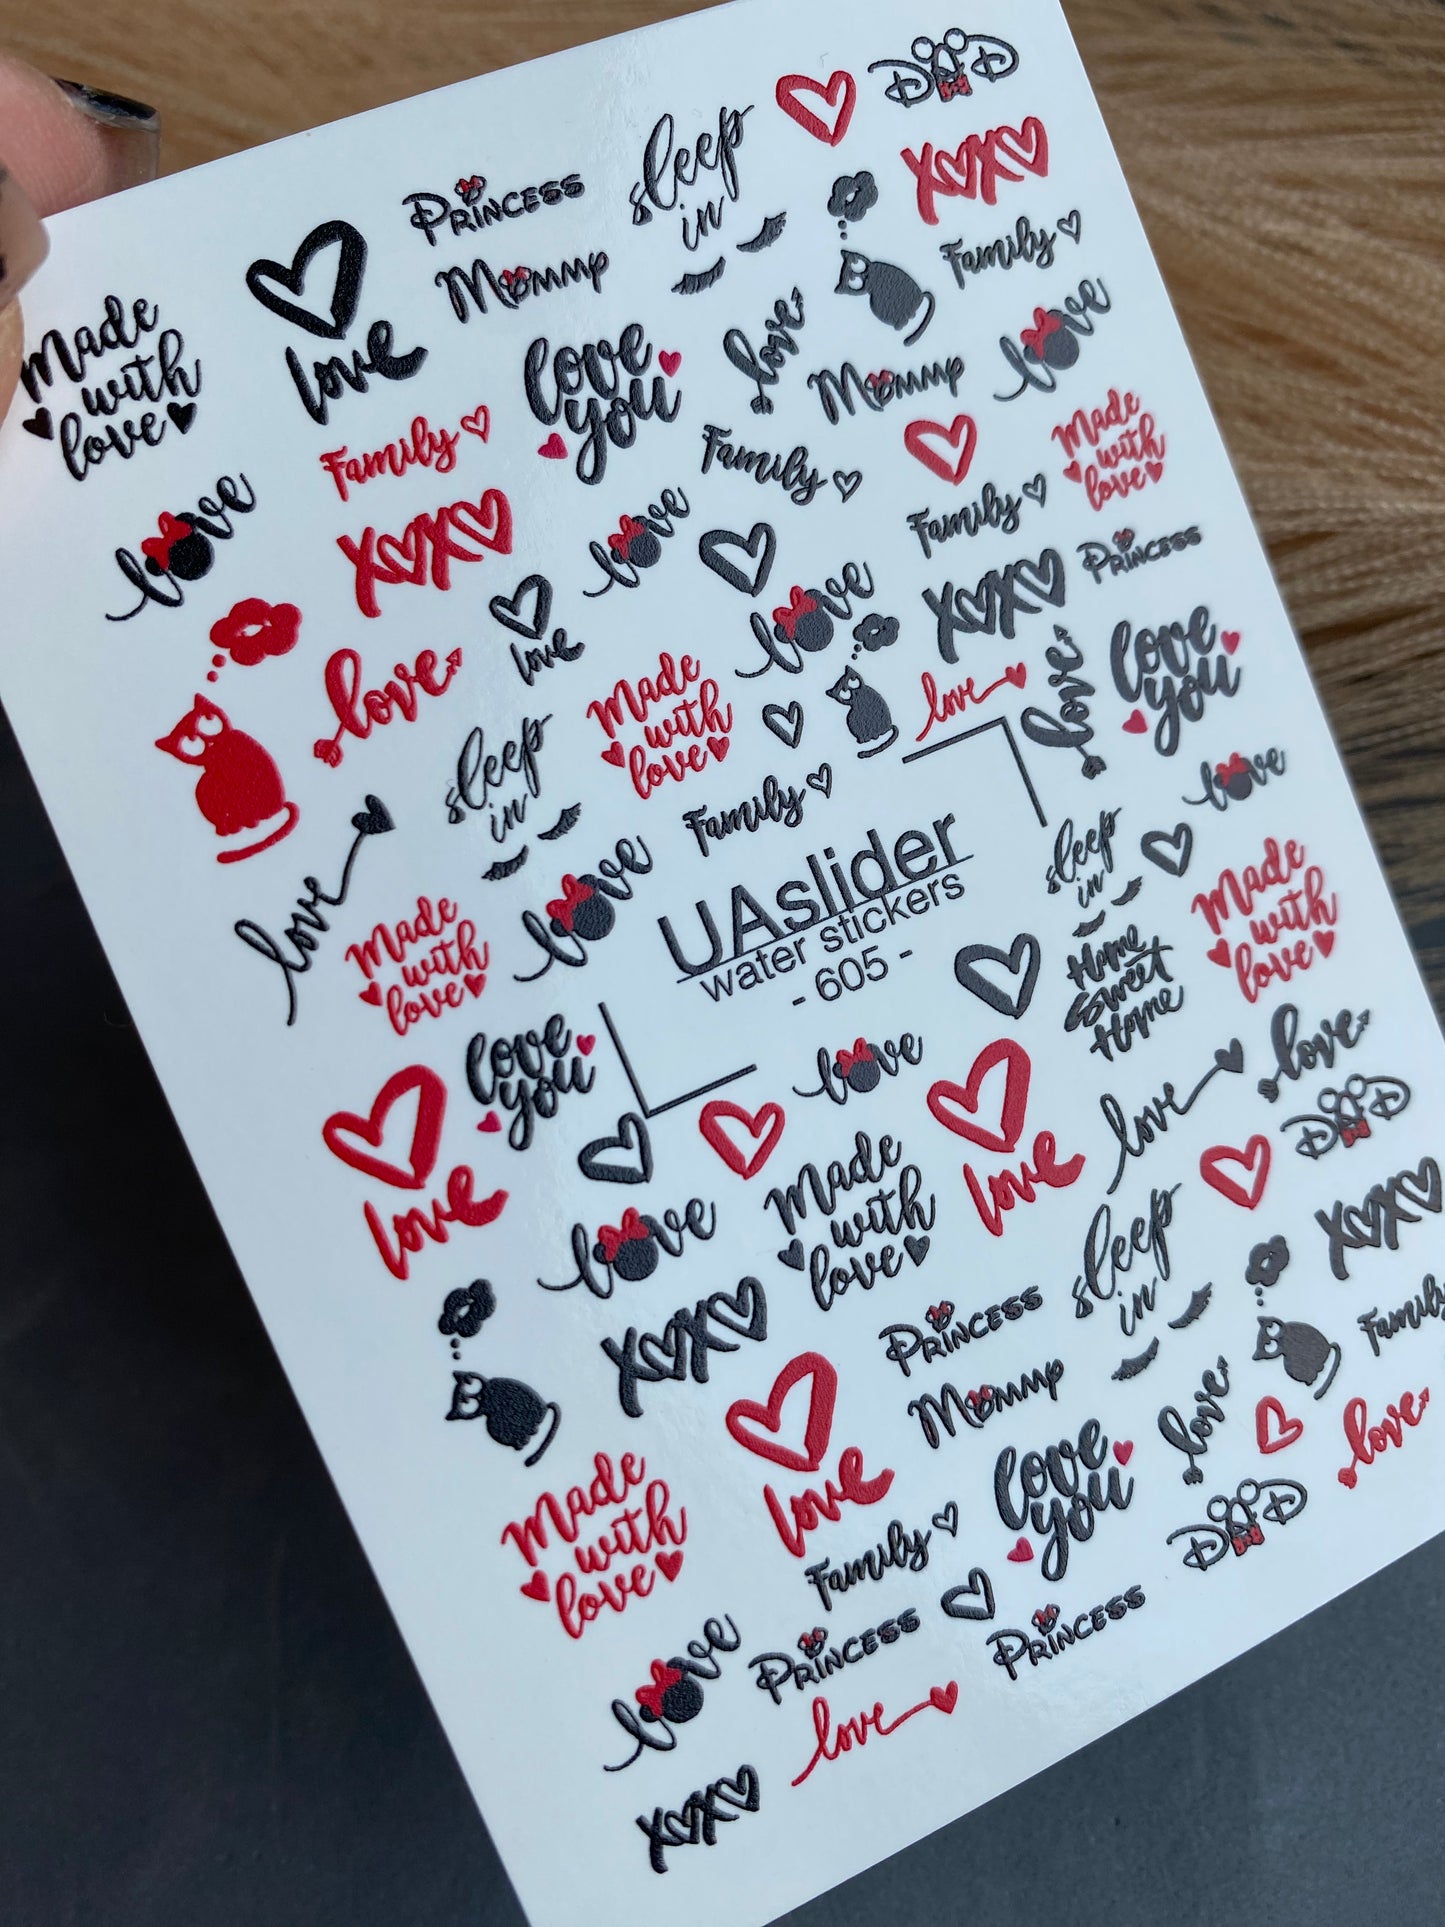 DAD
sleep
in
XOXO
Princess
Family
Mommy
Made
with
love
love
love
you
love
Mommy
love
Family
Family
Made
with
love
love
XOXO
love
Family
Princess
love
love
XOXO
love
you
love
Made
with
love
love
love
sleep
in
Family
love
love
UAslider
water stickers
- 605 -
sleep
in
Made
with
love
Made
with
love
love
Home
Sweet
Home
love
you
love
love
love
DAD
love
love
Made
with
love
love
sleep
in
XOXO
XOXO
Princess
Family
Mommy
love
love
love
Made
with
love
love
you
DAD
Family
Princess
Princess
love
love
XOXO